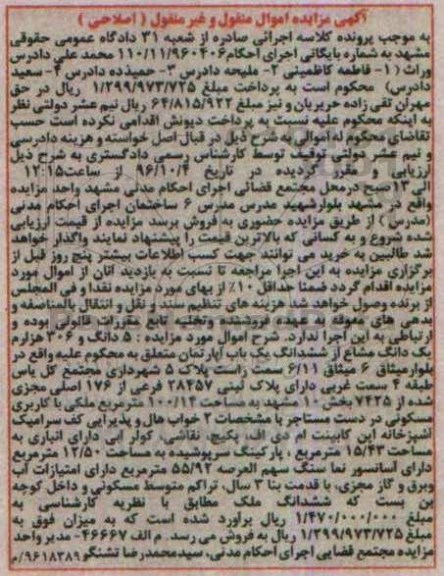 آگهی مزایده اموال منقول و غیر منقول ( اصلاحی )
به موجب پرونده کلاسه اجرائی صادره از شعبه ۳۱ دادگاه عمومی حقوقی
مشهد به شماره بایگانی اجرای احکام ۱۱۰/۱۱/۹۶۰۴۰۶ محمد علی دادرس
وراث (۱- فاطمه کاظمینی ۲- ملیحه دادرس ۳- حمیده دادرس ۴- سعید
دادرس) محکوم است به پرداخت مبلغ ۱/۲۹۹/۹۷۳/۷۲۵ ریال در حق
مهران تقی زاده حریریان و نیز مبلغ ۶۴/۸۱۵/۹۲۲ ریال نیم عشر دولتی نظر
به اینکه محکوم علیه نسبت به پرداخت دیونش اقدامی نکرده است حسب
تقاضای محکوم له اموالی به شرح ذیل در قبال اصل خواسته و هزینه دادرسی
و نیم عشر دولتی توقیف توسط کارشناس رسمی دادگستری به شرح ذیل
ارزیابی و مقرر گردیده در تاریخ ۹۶/۱۰/۴ از ساعت ۱۲:۱۵
الی ۱۳ صبح درمحل مجتمع قضائی اجرای احکام مدنی مشهد واحد مزایده
واقع در مشهد بلوارشهید مدرس مدرس ۶ ساختمان اجرای احکام مدنی
(مدرس) از طریق مزایده حضوری به فروش برسد مزایده از قیمت ارزیابی
شده شروع و به کسانی که بالاترین قیمت را پیشنهاد نمایند واگذار خواهد
شد طالبین به خرید می توانند جهت کسب اطلاعات بیشتر پنج روز قبل از
برگزاری مزایده به این اجرا مراجعه تا نسبت به بازدید آنان از اموال مورد
مزایده اقدام گردد ضمنا حداقل ۱۰٪ از بهای مورد مزایده نقدا و فی المجلس
از برنده وصول خواهد شد هزینه های تنظیم سند و نقل و انتقال بالمناصفه و
بدهی های معوقه بر عهده فروشنده وتخلیه تابع مقررات قانونی بوده و
ارتباطی به این اجرا ندارد. شرح اموال مورد مزایده : ۵ دانگ و ۳۰۶ هزارم
یک دانگ مشاع از ششدانگ یک باب آپارتمان متعلق به محکوم علیه واقع در
بلوارمیثاق ۶ میثاق ۶/۱۱ سمت راست پلاک ۵ شهرداری مجتمع گل یاس
طبقه ۴ سمت غربی دارای پلاک ثبتی ۲۸۴۵۷ فرعی از ۱۷۶ اصلی مجزی
شده از ۷۴۲۵ بخش ۱۰ مشهد به مساحت ۱۰۰/۱۴ مترمربع ملکی با کاربری
مسکونی در دست مستاجر با مشخصات ۲ خواب هال و پذیرایی کف سرامیک
آشپزخانه اپن کابینت ام دی اف، پکیج، نقاشی، کولر آبی دارای انباری به
مساحت ۱۵/۴۳ مترمربع ، پارکینگ سرپوشیده به مساحت ۱۲/۵۰ مترمربع
دارای آسانسور نما سنگ سهم العرصه ۵۵/۹۲ مترمربع دارای امتیازات آب
وبرق و گاز مجزی، با قدمت بنا ۳ سال، تراکم متوسط مسکونی و داخل کوچه
بن بست که ششدانگ ملک مطابق با نظریه کارشناسی به
مبلغ ۱/۴۷۰/۰۰۰/۰۰۰ ریال برآورد شده است که به میزان فوق به
مبلغ ۱/۲۹۹/۹۷۳/۷۲۵ ریال به فروش می رسد. م الف ۴۶۶۶۷- مدیر واحد
مزایده مجتمع قضایی اجرای احکام مدنی، سیدمحمدرضا تشتگر ۹۶۱۸۳۸۹/م